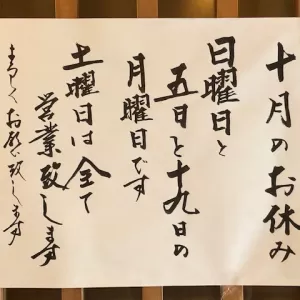 十月のお休み
日曜日と
五日と十九日の
月曜日です
土曜日は全て
営業致します
よろしくお願い致します